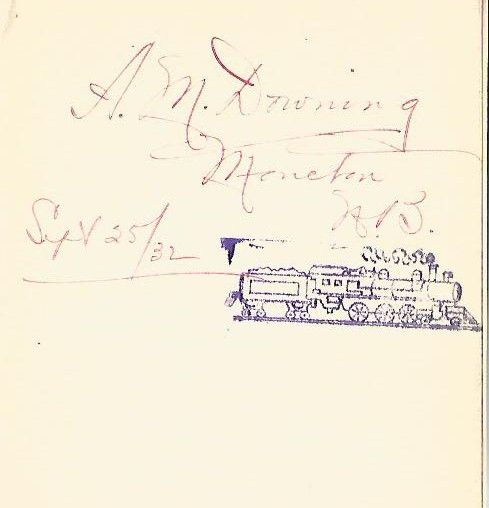 A. M. Downing
Moncton
N.B.
Sept 25/32